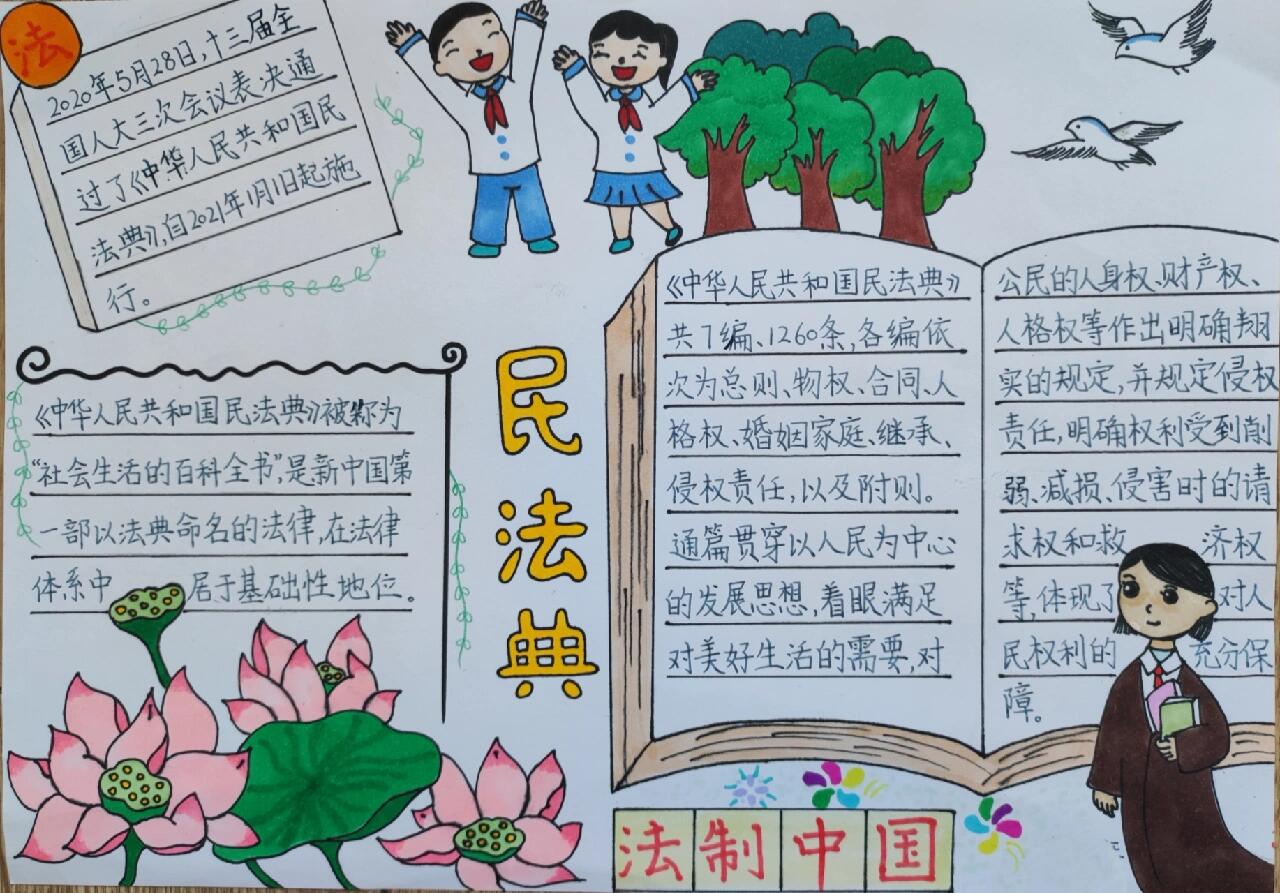 法
2020年5月28日,十三届全
国人大三次会议表决通
过了《中华人民共和国民
法典》,自2021年1月1日起施
行。
《中华人民共和国民法典》被称为
“社会生活的百科全书”,是新中国第
一部以法典命名的法律,在法律
体系中居于基础性地位。
民
法
典
《中华人民共和国民法典》
共7编、1260条,各编依
次为总则、物权、合同、人
格权、婚姻家庭、继承、
侵权责任,以及附则。
通篇贯穿以人民为中心
的发展思想,着眼满足
对美好生活的需要,对
公民的人身权、财产权、
人格权等作出明确翔
实的规定,并规定侵权
责任,明确权利受到削
弱、减损、侵害时的请
求权和救济权
等,体现了对人
民权利的充分保
障。
法制中国